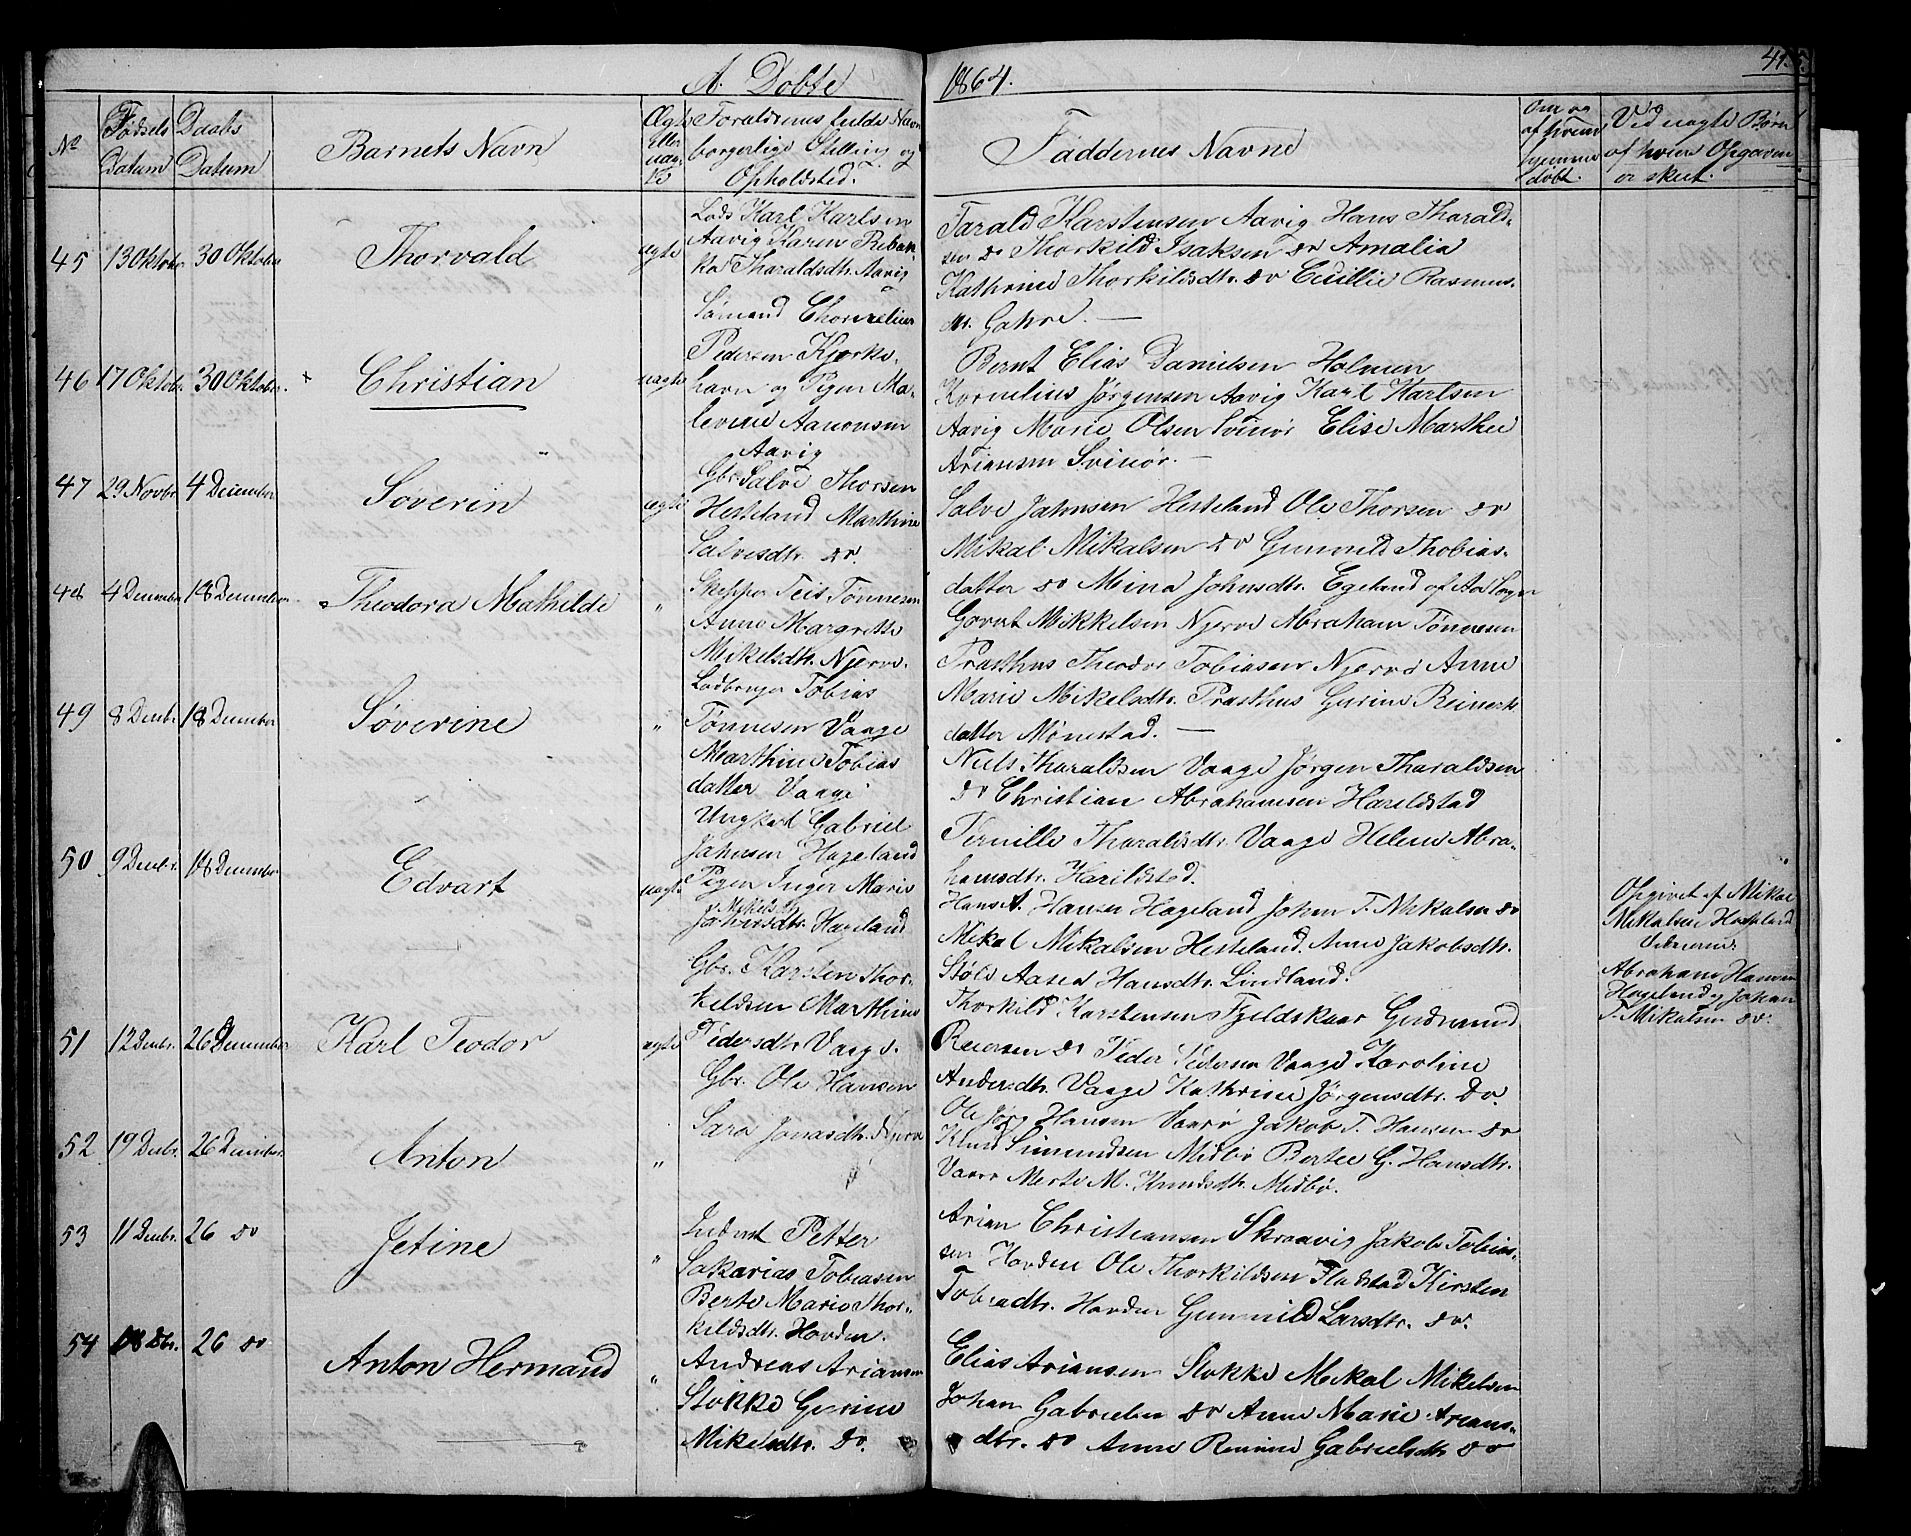 A. Døbte
1864.
41.
No
Fødsels Datum
Daabs Datum
Barnets Navn
Ægte Eller uægte
Forældrenes fulde Navn
borgerlige Stilling og
Opholdsted.
Faddernes Navne
Om og
af hvem
hjemme
døbt.
Ved uagte Børn
af hvem Opgaven
er skeet.
45 13 Oktobr 30 Oktober Thorvald agte
Lods Karl Karlsen
Aavig Karen Rebek
ka Tharaldsdtr. Aavig
Tarald Karstensen Aavig Hans Tharald-
sen do Thorkild Isaksen do Amalia
Kathrine Thorkildsdtr. do Cecillie Rasmus-
dtr. Gahre.
46 17 Oktobr. 30 Oktober. + Christian uagte
Sømand Chornelius
Pedersen Kjerke-
havn og Pigen Ma-
levine Aanonsen
Aavig
Bernt Elias Danielsen Holmen
Kornelius Jørgensen Aavig Karl Karlsen
Aavig Marie Olsen Svinør Elise Marthee
Ariansen Svinør.
47 29 Novbr. 4 December Søverin agte
Gbr. Salve Thorsen
Hesteland Marthine
Salvesdtr. do.
Salve Jahnsen Hesteland Ole Thorsen do
Mikal Mikalsen do Gunnild Thobias-
datter do Mina Johnsdtr. Egeland af Aa Sogn
48 4 December 18 December Theodora Mathilde "
Skipper Teis Tønnesen
Anne Margrethe
Mikelsdtr. Njerve.
Govert Mikkelsen Njerve Abraham Tønnesen
Prasthus Theodor Tobiasen Njerve Anne
Marie Mikelsdtr. Prasthus Gurine Reinert-
datter Mønestad.
49 8 Decbr. 18 December Søverine "
Ladbruger Tobias
Tønnesen Vaage
Marthine Tobias
datter Vaage
Niels Tharaldsen Vaage Jørgen Tharaldsen
do Christian Abrahamsen Harildstad
Pernille Tharaldsdtr. Vaage Helene Abra-
hamsdtr. Harildstad.
50 9 Decbr. 18 December Edvart uagte
Ungkarl Gabriel
Jahnsen Hageland
Pigen Inger Marie
Mikels
Jahnsdtr. Hageland
Hans A. Hansen Hageland Johan T. Mikalsen do
Mikal Mikalsen Hesteland. Anne Jakobsdtr.
Støle Aasea Hansdtr. Lindland.
Opgivet af Mikal
Mikalsen Hageland
Abraham Hansen
Hageland og Johan
T. Mikalsen do.
51 12 Decbr. 26 December Karl Teodor agte
Gbr. Karsten Thor-
kildsen Marthine
Pedersdtr. Vaage.
Thorkild Karstensen Fjeldskaar Gudmund
Reiersen do Peder Pedersen Vaage Karoline
Andersdtr. Vaage Kathrine Jørgensdtr. Do.
52 19 Decbr. 26 December. Anton "
Gbr. Ole Hansen
Sara Jonasdtr. Njerve
Ole Jørg Hansen Vaarø Jakob T. Hansen do
Knud Simundsen Midbø Bertee G. Hansdtr.
Vaarø Merte M. Knudsdtr. Midbø.
53 11 Decbr. 26 do Jetine "
Inderst Petter
Sakarias Tobiasen
Berte Marie Thor-
kildsdtr. Hovden.
Arian Christiansen Skraavig Jakob Tobias-
sen Hovden Ole Thorkildsen Fladstad Kirsten
Tobiadtr. Hovden Gunnild Larsdtr. do.
54 18 Dbr. 26 do Anton Hermand "
Andreas Ariansen
Stokke Gurine
Mikelsdtr. Do.
Elias Ariansen Stokke Mekal Mikelsen
Johan Gabrielsen do Anne Marie Arians-
dtr. do Anne Remine Gabrielsdtr do